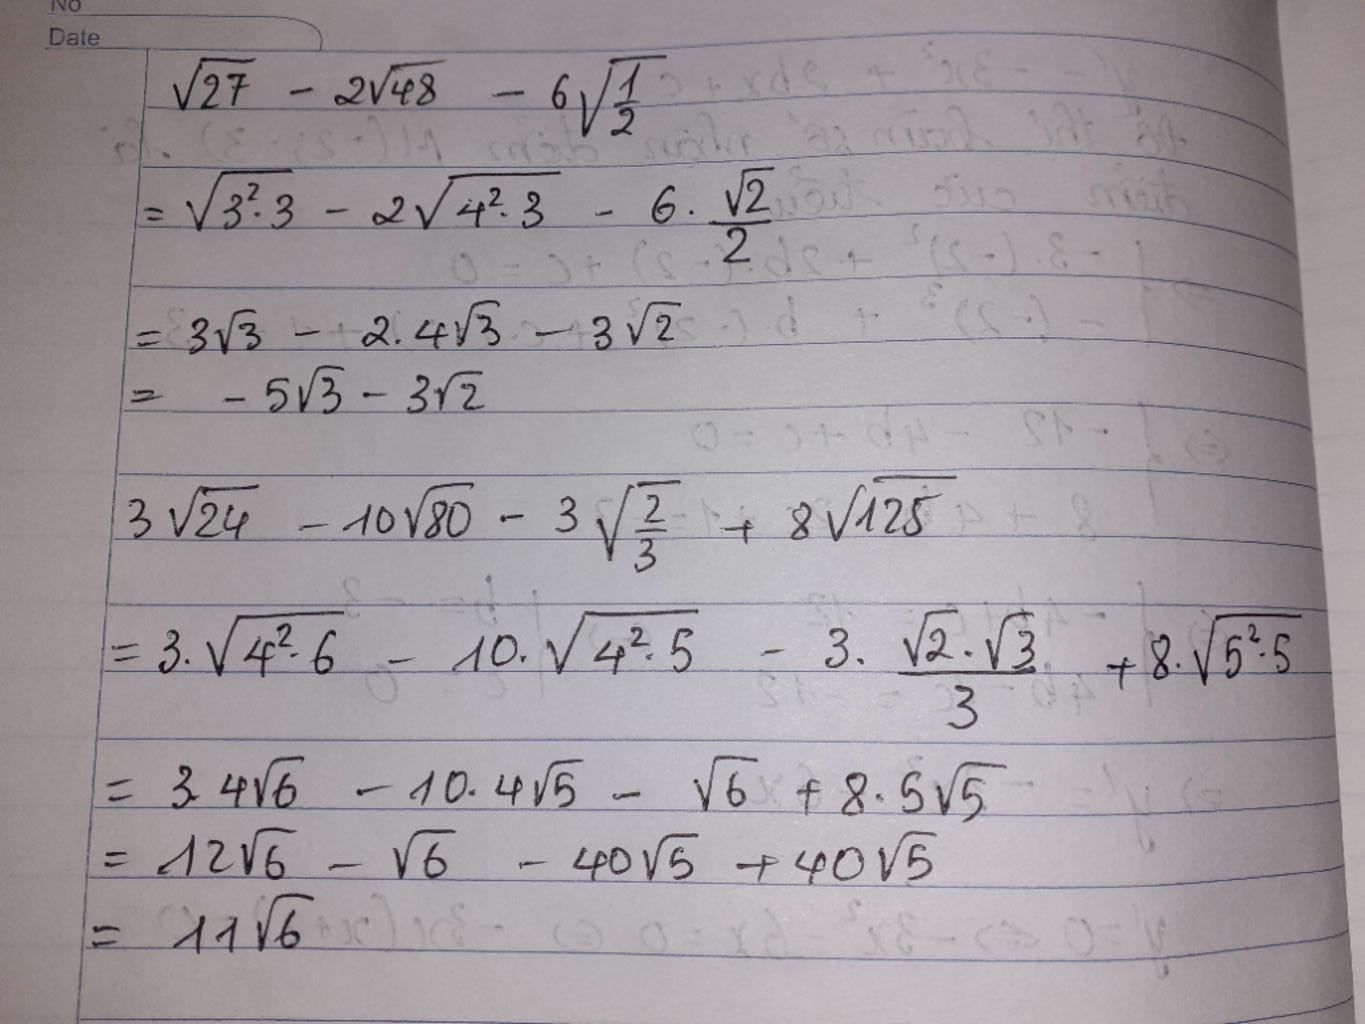 No
Date
√27 - 2√48 - 6√(1/2)
= √(3².3) - 2√(4².3) - 6.√2/2
= 3√3 - 2.4√3 - 3√2
= -5√3 - 3√2
3√24 - 10√80 - 3√(2/3) + 8√125
= 3.√(4².6) - 10.√(4².5) - 3.(√2.√3)/3 + 8.√(5².5)
= 3.4√6 - 10.4√5 - √6 + 8.5√5
= 12√6 - √6 - 40√5 + 40√5
= 11√6